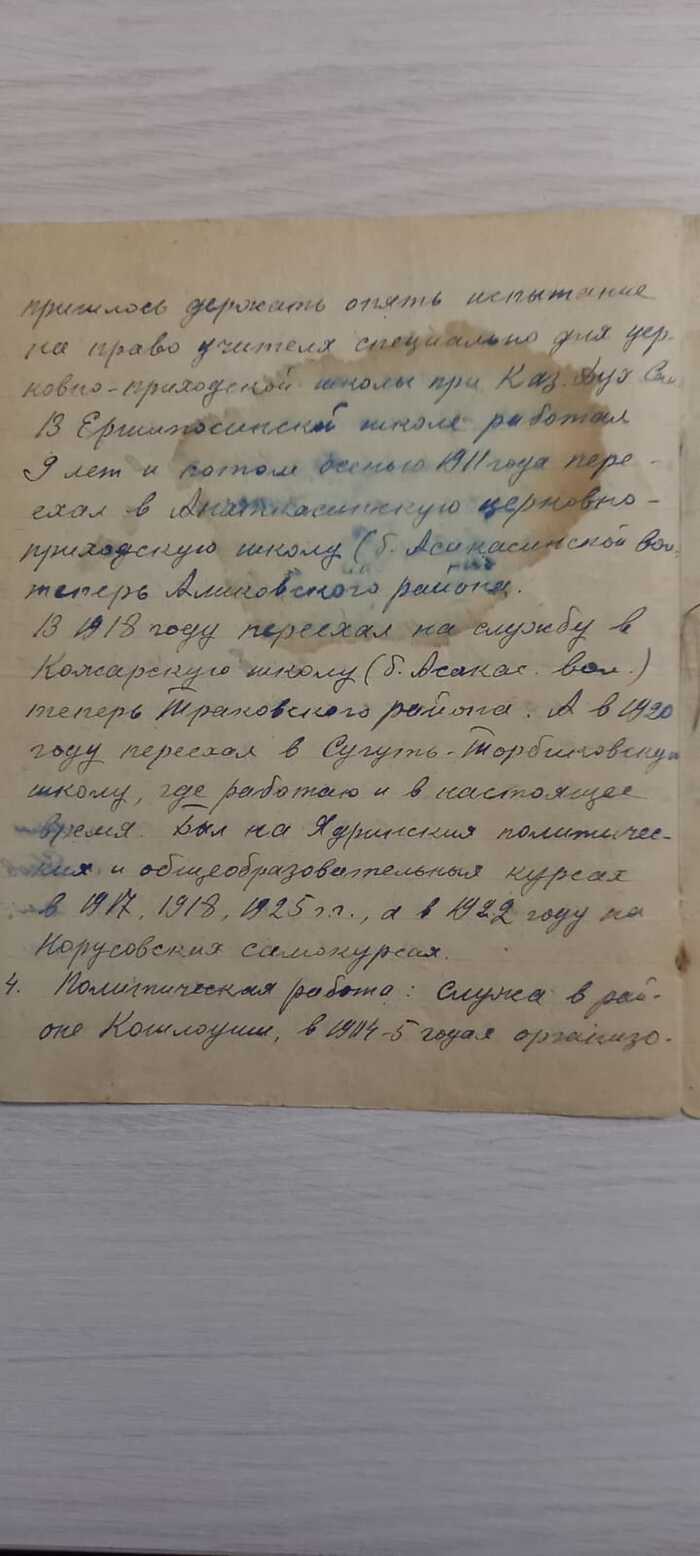 пришлось держать опять испытание
на право учителя специально для цер-
ковно-приходской школы при Каз. Дух Сем
В Ершипосинской школе работал
9 лет и потом осенью 1911 года пере-
ехал в церковно-
приходскую школу (б. Асакасинской вол.
теперь Аликовского района.
В 1918 году переехал на службу в
Кожарскую школу (б. Асакас. вол.)
теперь Траковского района. А в 1920
году переехал в Сугуть-Торбиковскую
школу, где работаю и в настоящее
время. Был на Ядринских политичес-
ких и общеобразовательных курсах
в 1917, 1918, 1925 г.г., а в 1922 году на
Норусовских самокурсах.
4. Политическая работа: Служа в рай-
оне Кошлоуши, в 1904-5 годах организо-